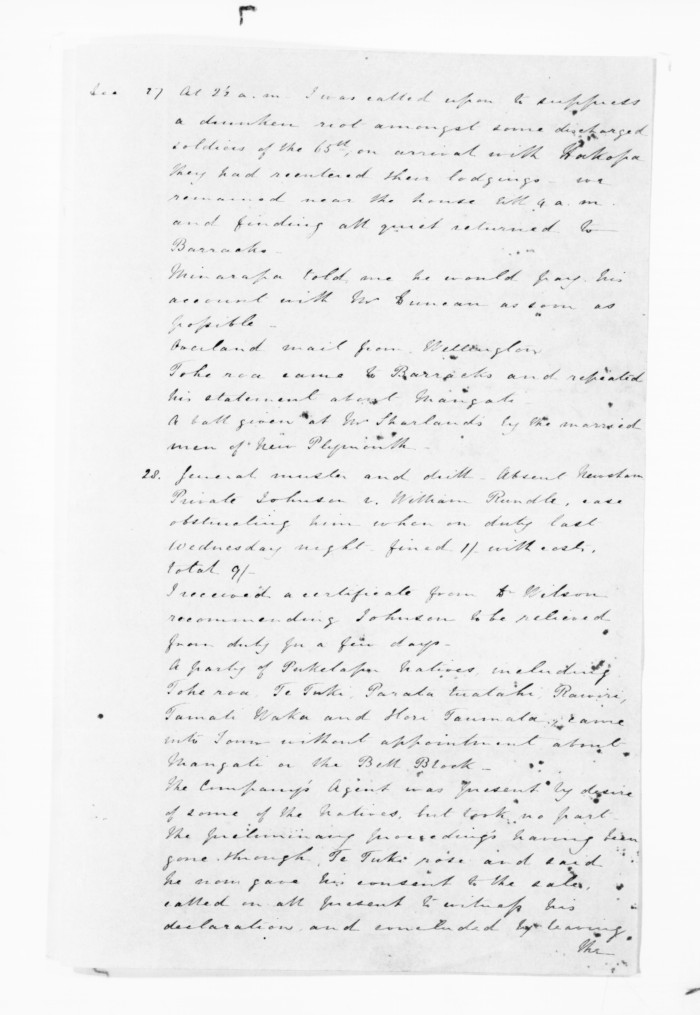 Dec 27 At 2½ a.m. I was called upon to suppress
a drunken riot amongst some discharged
soldiers of the 65th, on arrival with Hakopa
they had reentered their lodgings - we
remained near the house till 4 a.m.
and finding all quiet returned to
Barracks -
Minarapa told me he would pay his
account with Mr Duncan as soon as
possible -
Overland mail from Wellington
Tohe roa came to Barracks and repeated
his statement about Mangati -
A ball given at Mr Sharland's by the married
men of New Plymouth -
28. General muster and drill - Absent Newsham
Private Johnson v. William Rundle, case
obstructing him when on duty last
Wednesday night - fined 1/- with costs,
total 9/-
I received a certificate from Dr Wilson
recommending Johnson to be relieved
from duty for a few days -
A party of Puketapu Natives including
Tohe roa, Te Tuki, Parata Watahi, Rawiri,
Tamati Waka and Hori Taumata, came
into Town without appointment about
Mangati or the Bell Block -
The Company's Agent was present by desire
of some of the Natives, but took no part
The preliminary proceedings having been
gone through, Te Tuki rose and said
he now gave his consent to the sale,
called on all present to witness his
declaration and concluded by leaving
the